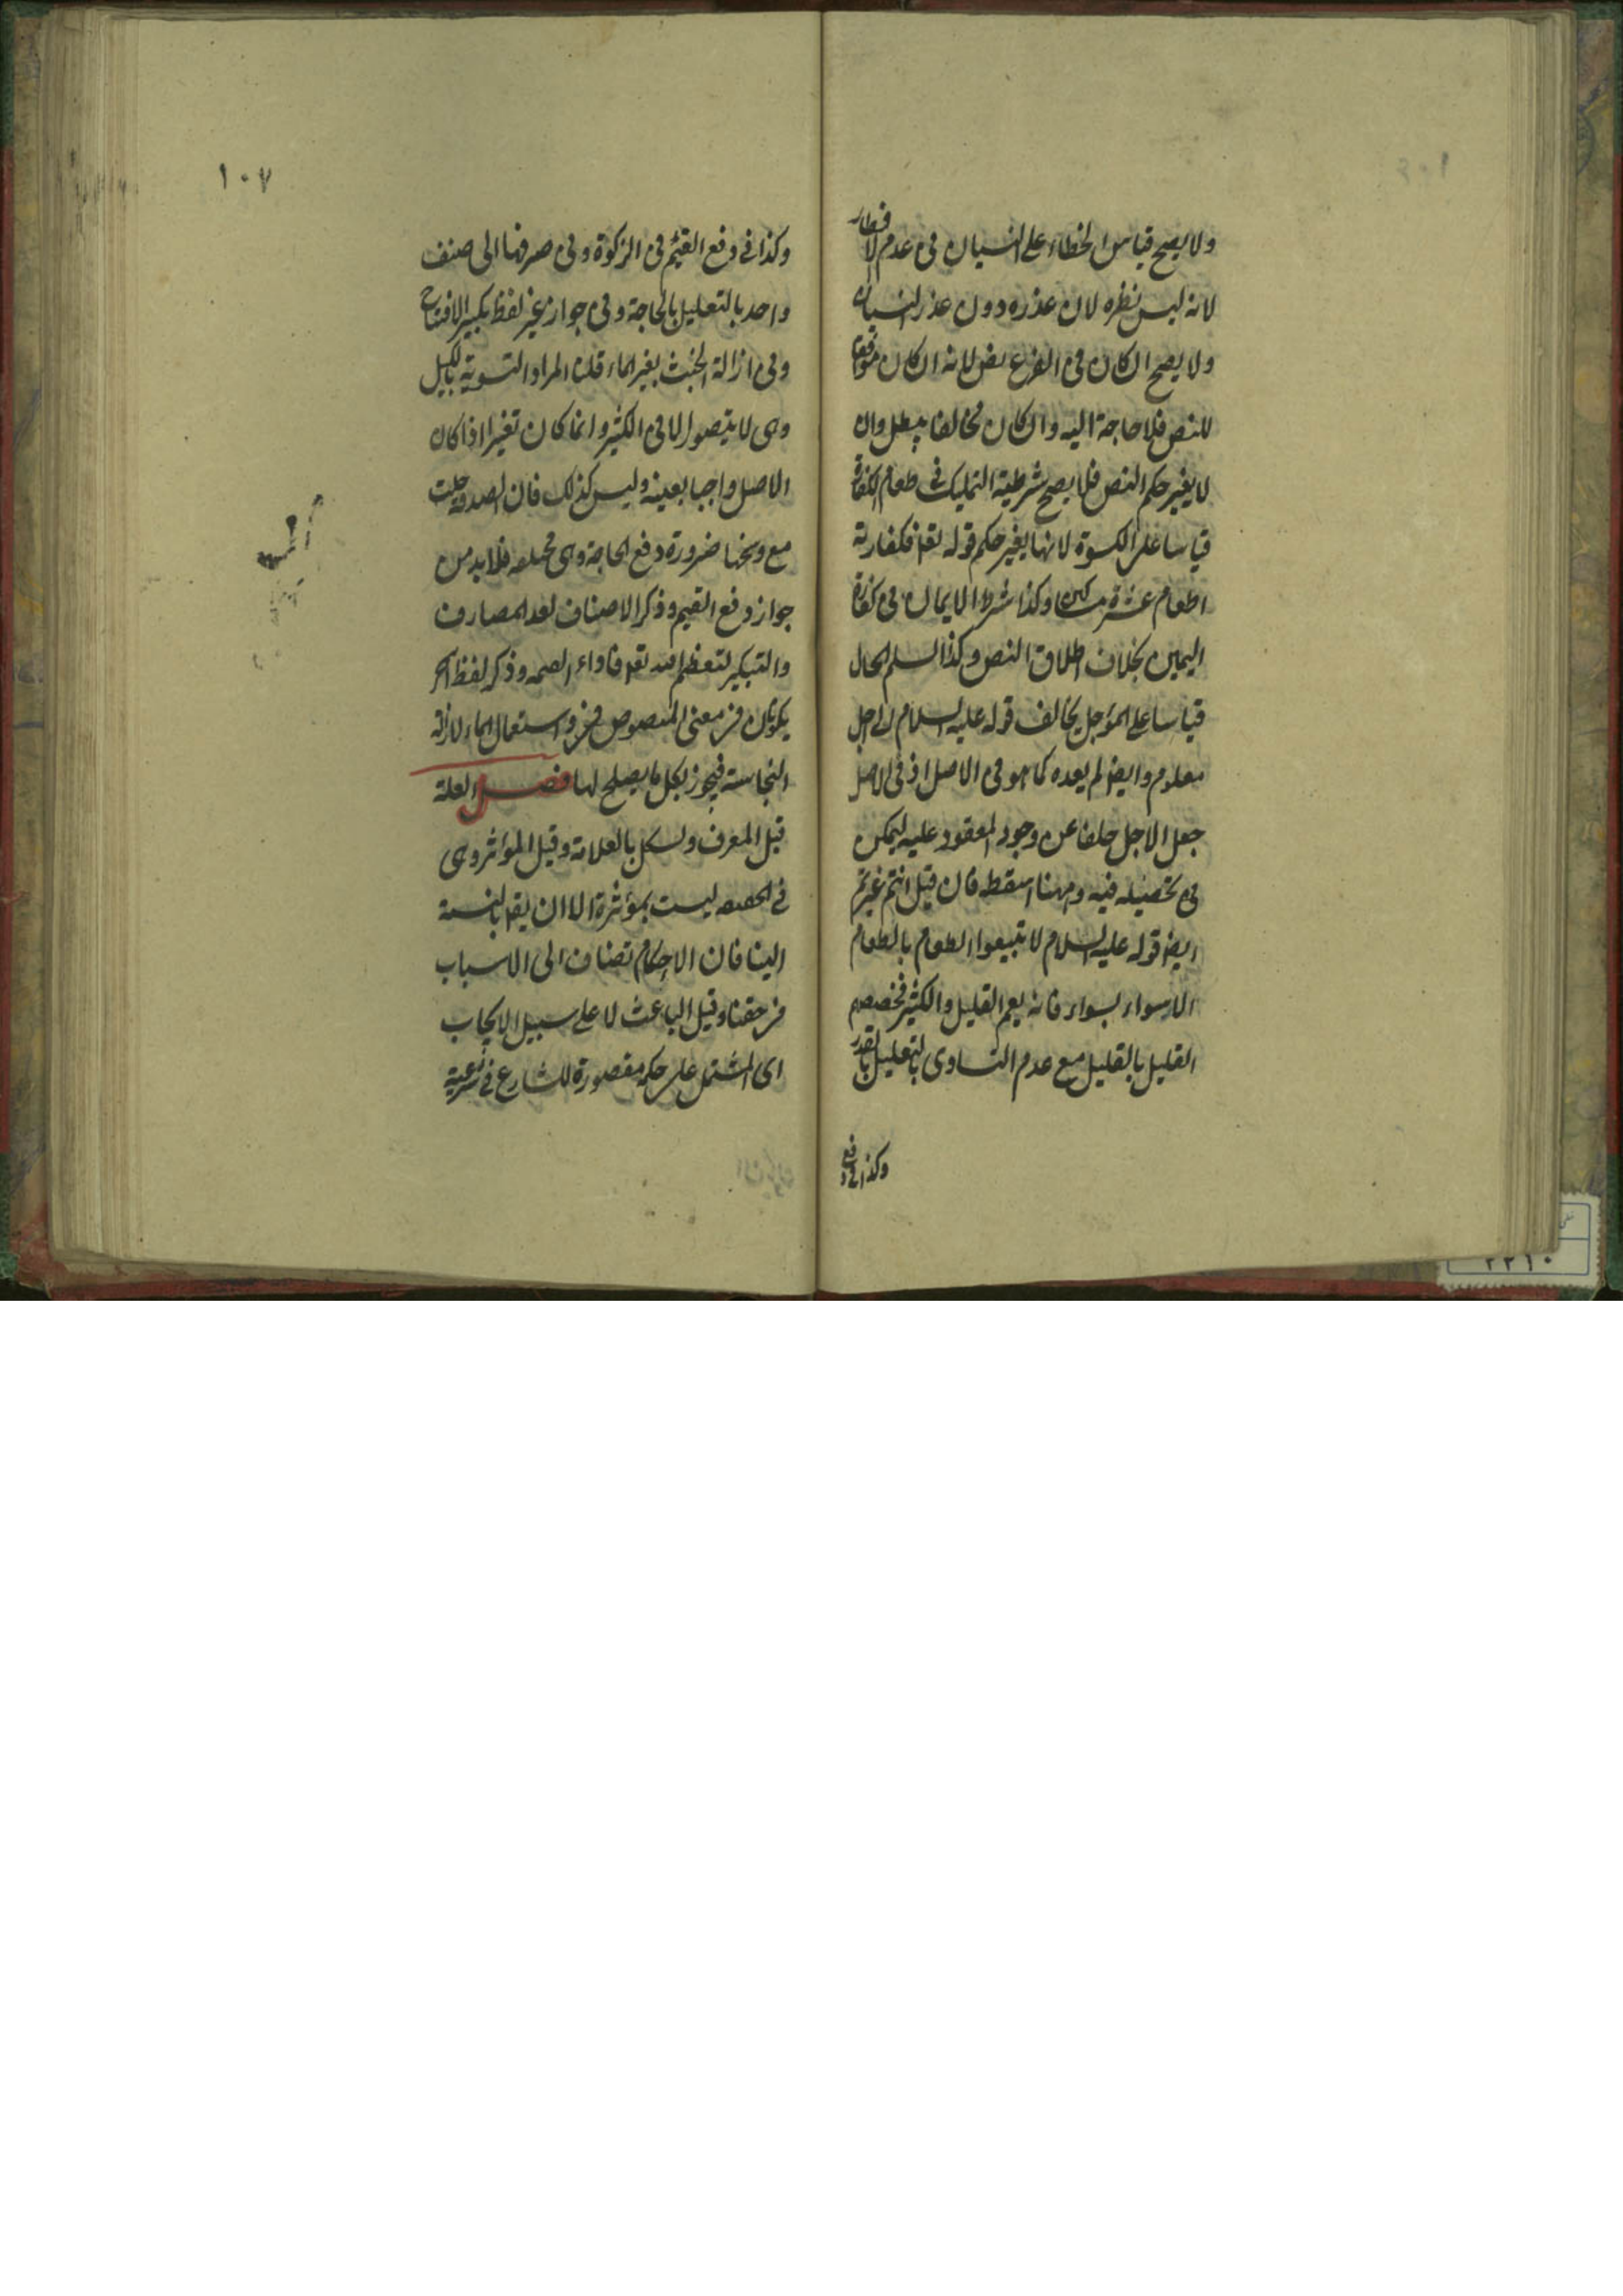 ولا يصح قياس الخطاء على النسيان فى عدم الافطار
لانه ليس نظره لان عذره دون عذر النسيان
ولا يصح ان كان فى الفرع نص لانه ان كان موافقا
للنص فلا حاجة اليه وان كان مخالفا يبطل وان
لا يغير حكم النص فلا يصح شرطية التمليك فى طعام الكفارة
قياسا على الكسوة لانها يغير حكم قوله تعا فكفارته
اطعام عشرة مساكين وكذا شرط الايمان فى كفارة
اليمين بخلاف اطلاق النص وكذا السلم الحال
قياسا على المؤجل يخالف قوله عليه السلام الى اجل
معلوم وايض لم يعده كما هو فى الاصل اذ فى الاصل
جعل الاجل خلفا عن وجود المعقود عليه ليمكن
فى تحصيله فيه وههنا اسقطه فان قيل انتم غيرتم
ايض قوله عليه السلام لا تبيعوا الطعام بالطعام
الا سواء بسواء فانه يعم القليل والكثير فخصصتم
القليل بالقليل مع عدم التساوى بالتعليل بالقدر
وكذا فى دفع
١٠٧
وكذا فى دفع القيم فى الزكوة وفى صرفها الى صنف
واحد بالتعليل بالحاجة وفى جواز غير لفظ تكبير الافتتاح
وفى ازالة الخبث بغير الماء قلنا المراد التسوية بالكيل
وهى لا يتصور الا فى الكثير وانما كان تغييرا اذا كان
الاصل واجبا بعينه وليس كذلك فان الصدقة حلت
مع وسخها ضرورة دفع الحاجة وهى مختلفه فلابد من
جواز دفع القيم وذكر الاصناف لعد المصارف
والتكبير لتعظيم الله تعا فاداء وذكر لفظ اخر
يكونان فى معنى المنصوص واستعمال الماء لازالة
النجاسة فيجوز بكل ما يصلح لها فصل العلة
قيل المعرف ويشكل بالعلامة وقيل المؤثر وهى
فى الحقيقه ليست بمؤثرة الا ان يقا بالنسبة
الينا فان الاحكام تضاف الى الاسباب
فى حقنا وقيل الباعث لا على سبيل الايجاب
اى المشتمل على حكمة مقصورة للشارع فى شرعية